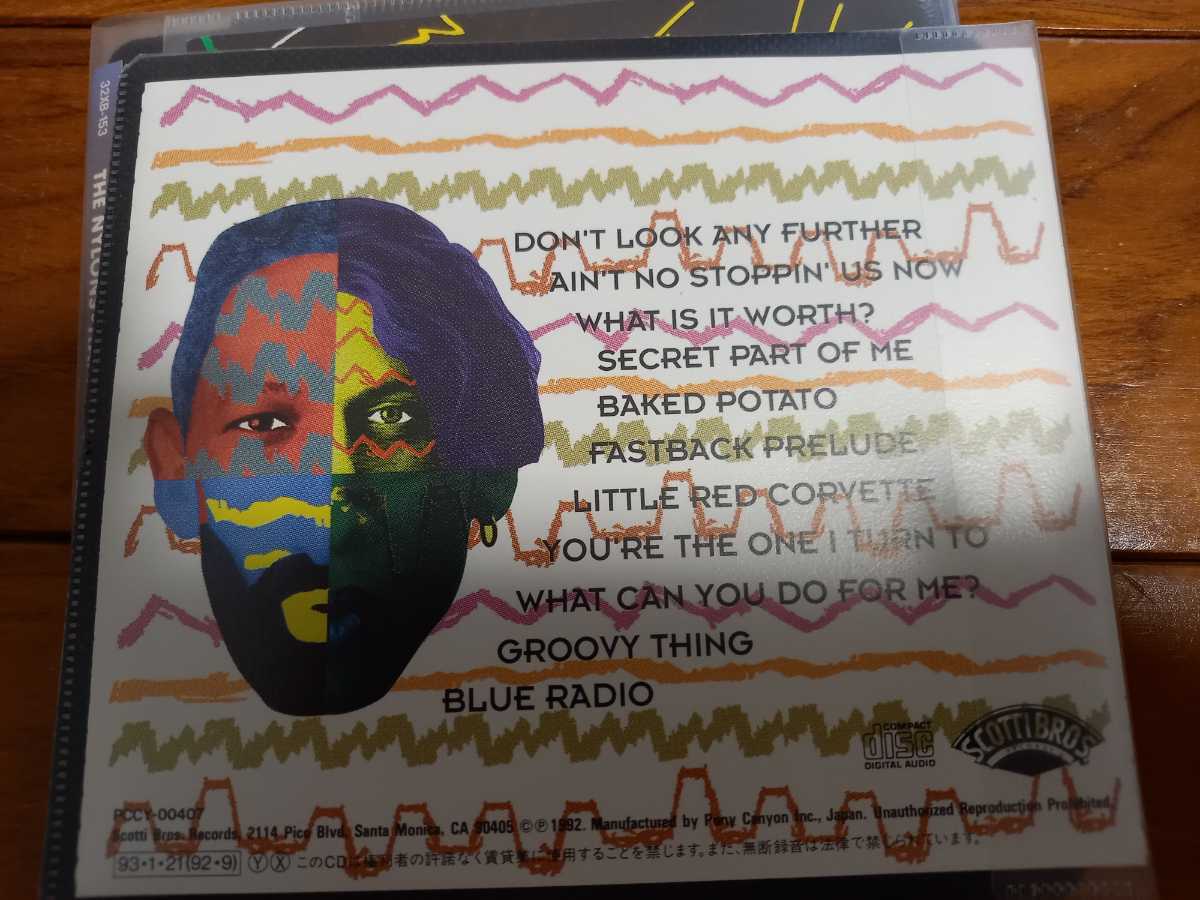 32XB-153
THE NYLONS
DON'T LOOK ANY FURTHER
AIN'T NO STOPPIN' US NOW
WHAT IS IT WORTH?
SECRET PART OF ME
BAKED POTATO
FASTBACK PRELUDE
LITTLE RED CORVETTE
YOU'RE THE ONE I TURN TO
WHAT CAN YOU DO FOR ME?
GROOVY THING
BLUE RADIO
COMPACT
disc
DIGITAL AUDIO
SCOTTI BROS.
PCCY-00407
Scotti Bros. Records, 2114 Pico Blvd. Santa Monica, CA 90405 ©℗1992. Manufactured by Pony Canyon Inc., Japan. Unauthorized Reproduction Prohibited.
93・1・21(92・9) Ⓨ Ⓧ このCDは権利者の許諾なく賃貸業に使用することを禁じます。また、無断録音は法律で禁じられています。